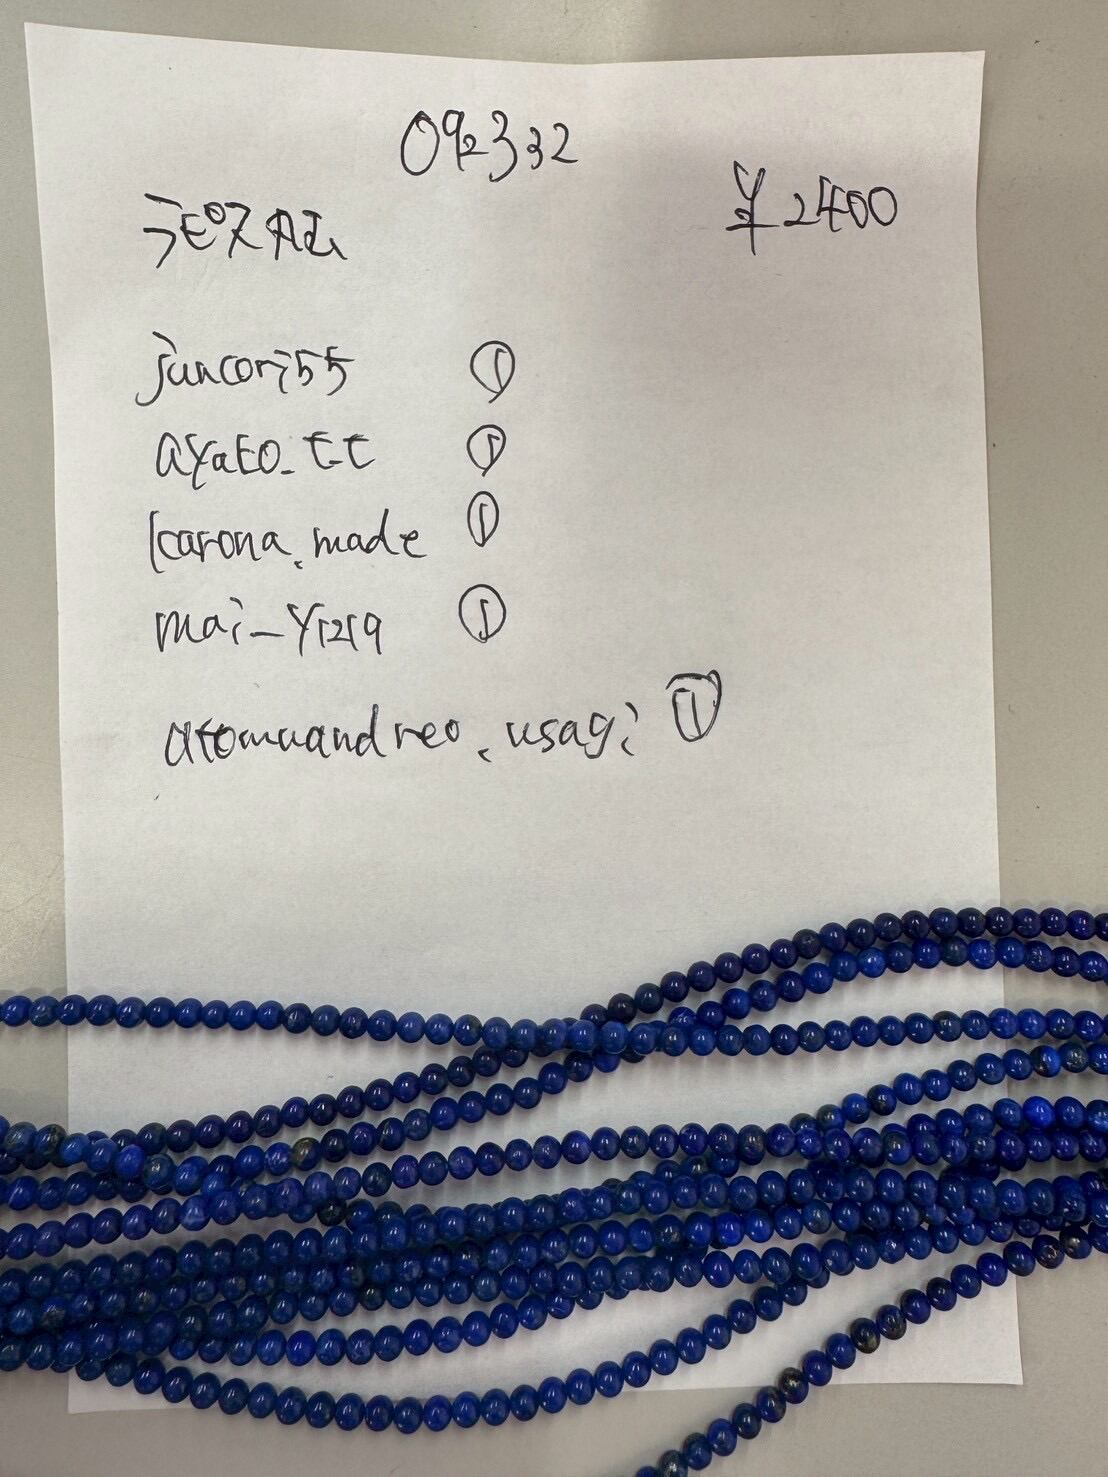 092332
¥2400
ラピス AZ
juncori55 ①
ayato_tt ①
karona.made ①
mai_y1219 ①
atomuandreo.usagi ①